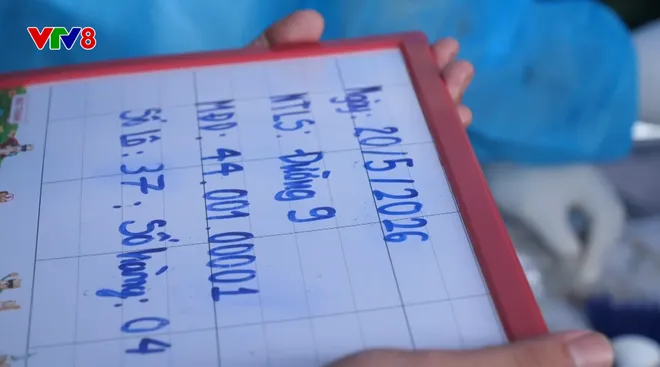 VTV8
Ngày: 20/5/2026
NTLS: Đường 9
MĐD: 44.001.00001
Số lô: 37; Số hàng: 04